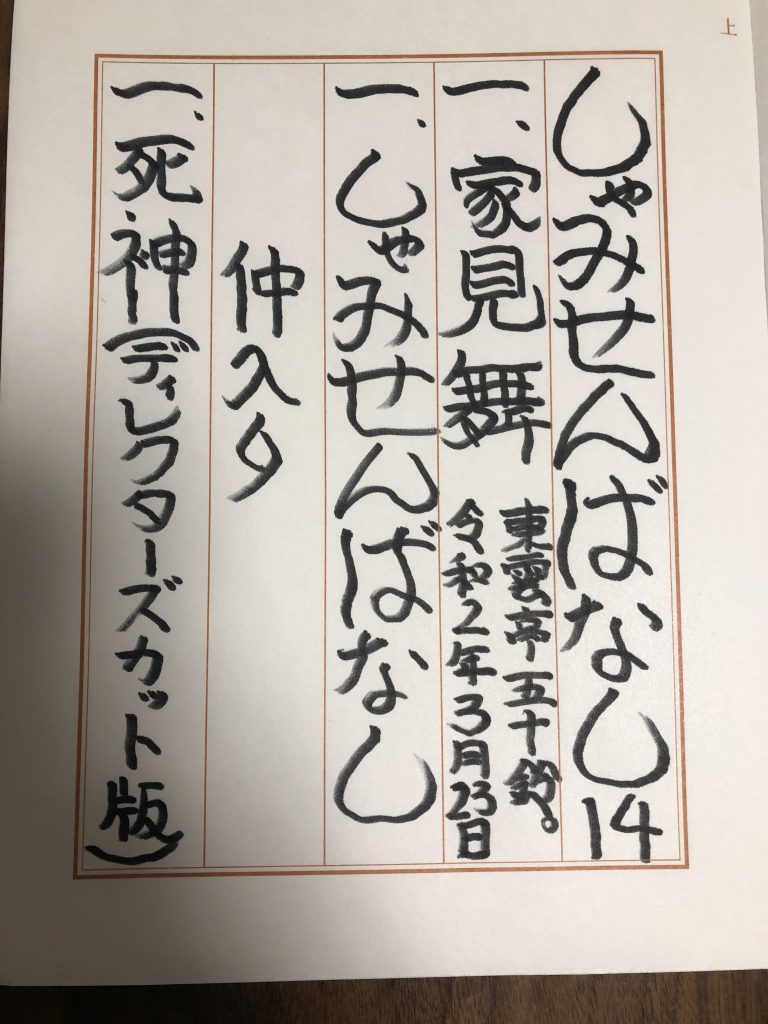 上
しゃみせんばなし14
一、家見舞
東雲亭五十鈴。
令和2年3月23日
一、しゃみせんばなし
仲入り
一、死神(ディレクターズカット版)